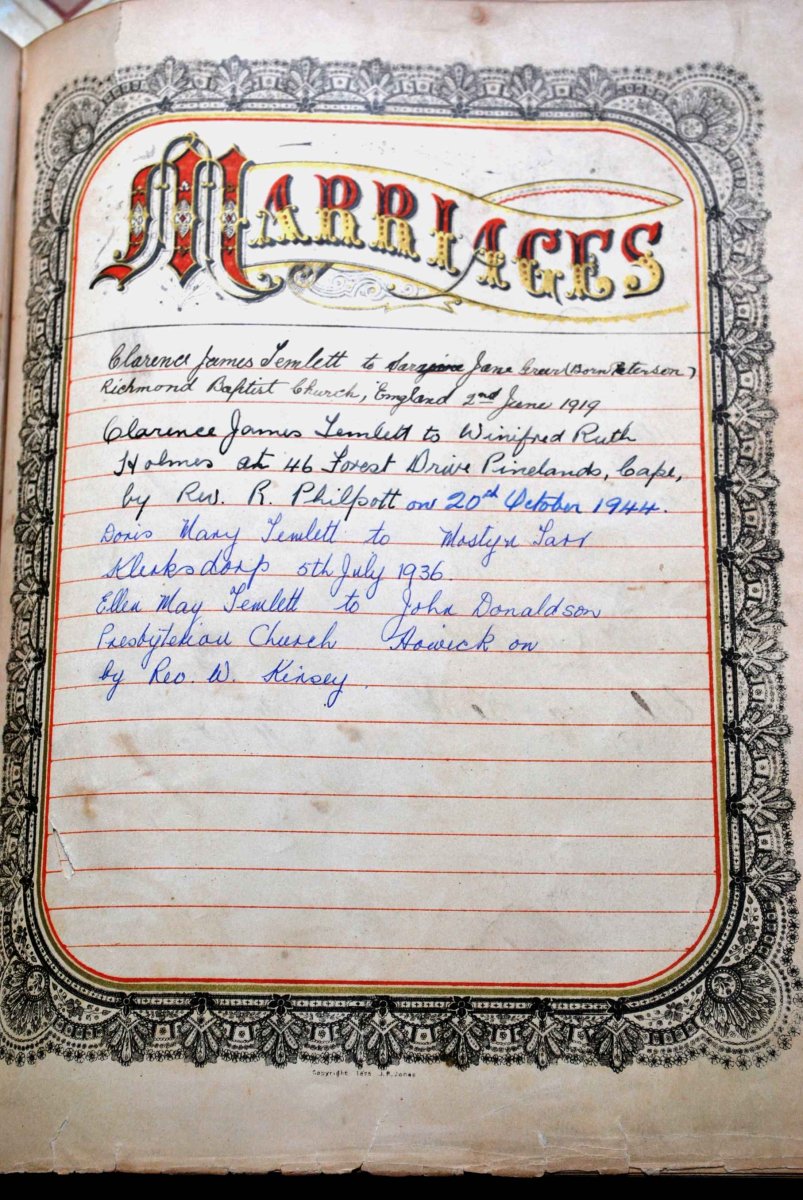 MARRIAGES
Clarence James Temlett to Jane Greer (Born Peterson)
Richmond Baptist Church, England 2nd June 1919
Clarence James Temlett to Winifred Ruth
Holmes at 46 Forest Drive Pinelands, Cape,
by Rev. R. Philpott on 20th October 1944.
Doris Mary Temlett to Mostyn Tarr
Klerksdorp 5th July 1936.
Ellen May Temlett to John Donaldson
Presbyterian Church Howick on
by Rev. W. Kinsey.
Copyright 1875 J.R.Jones